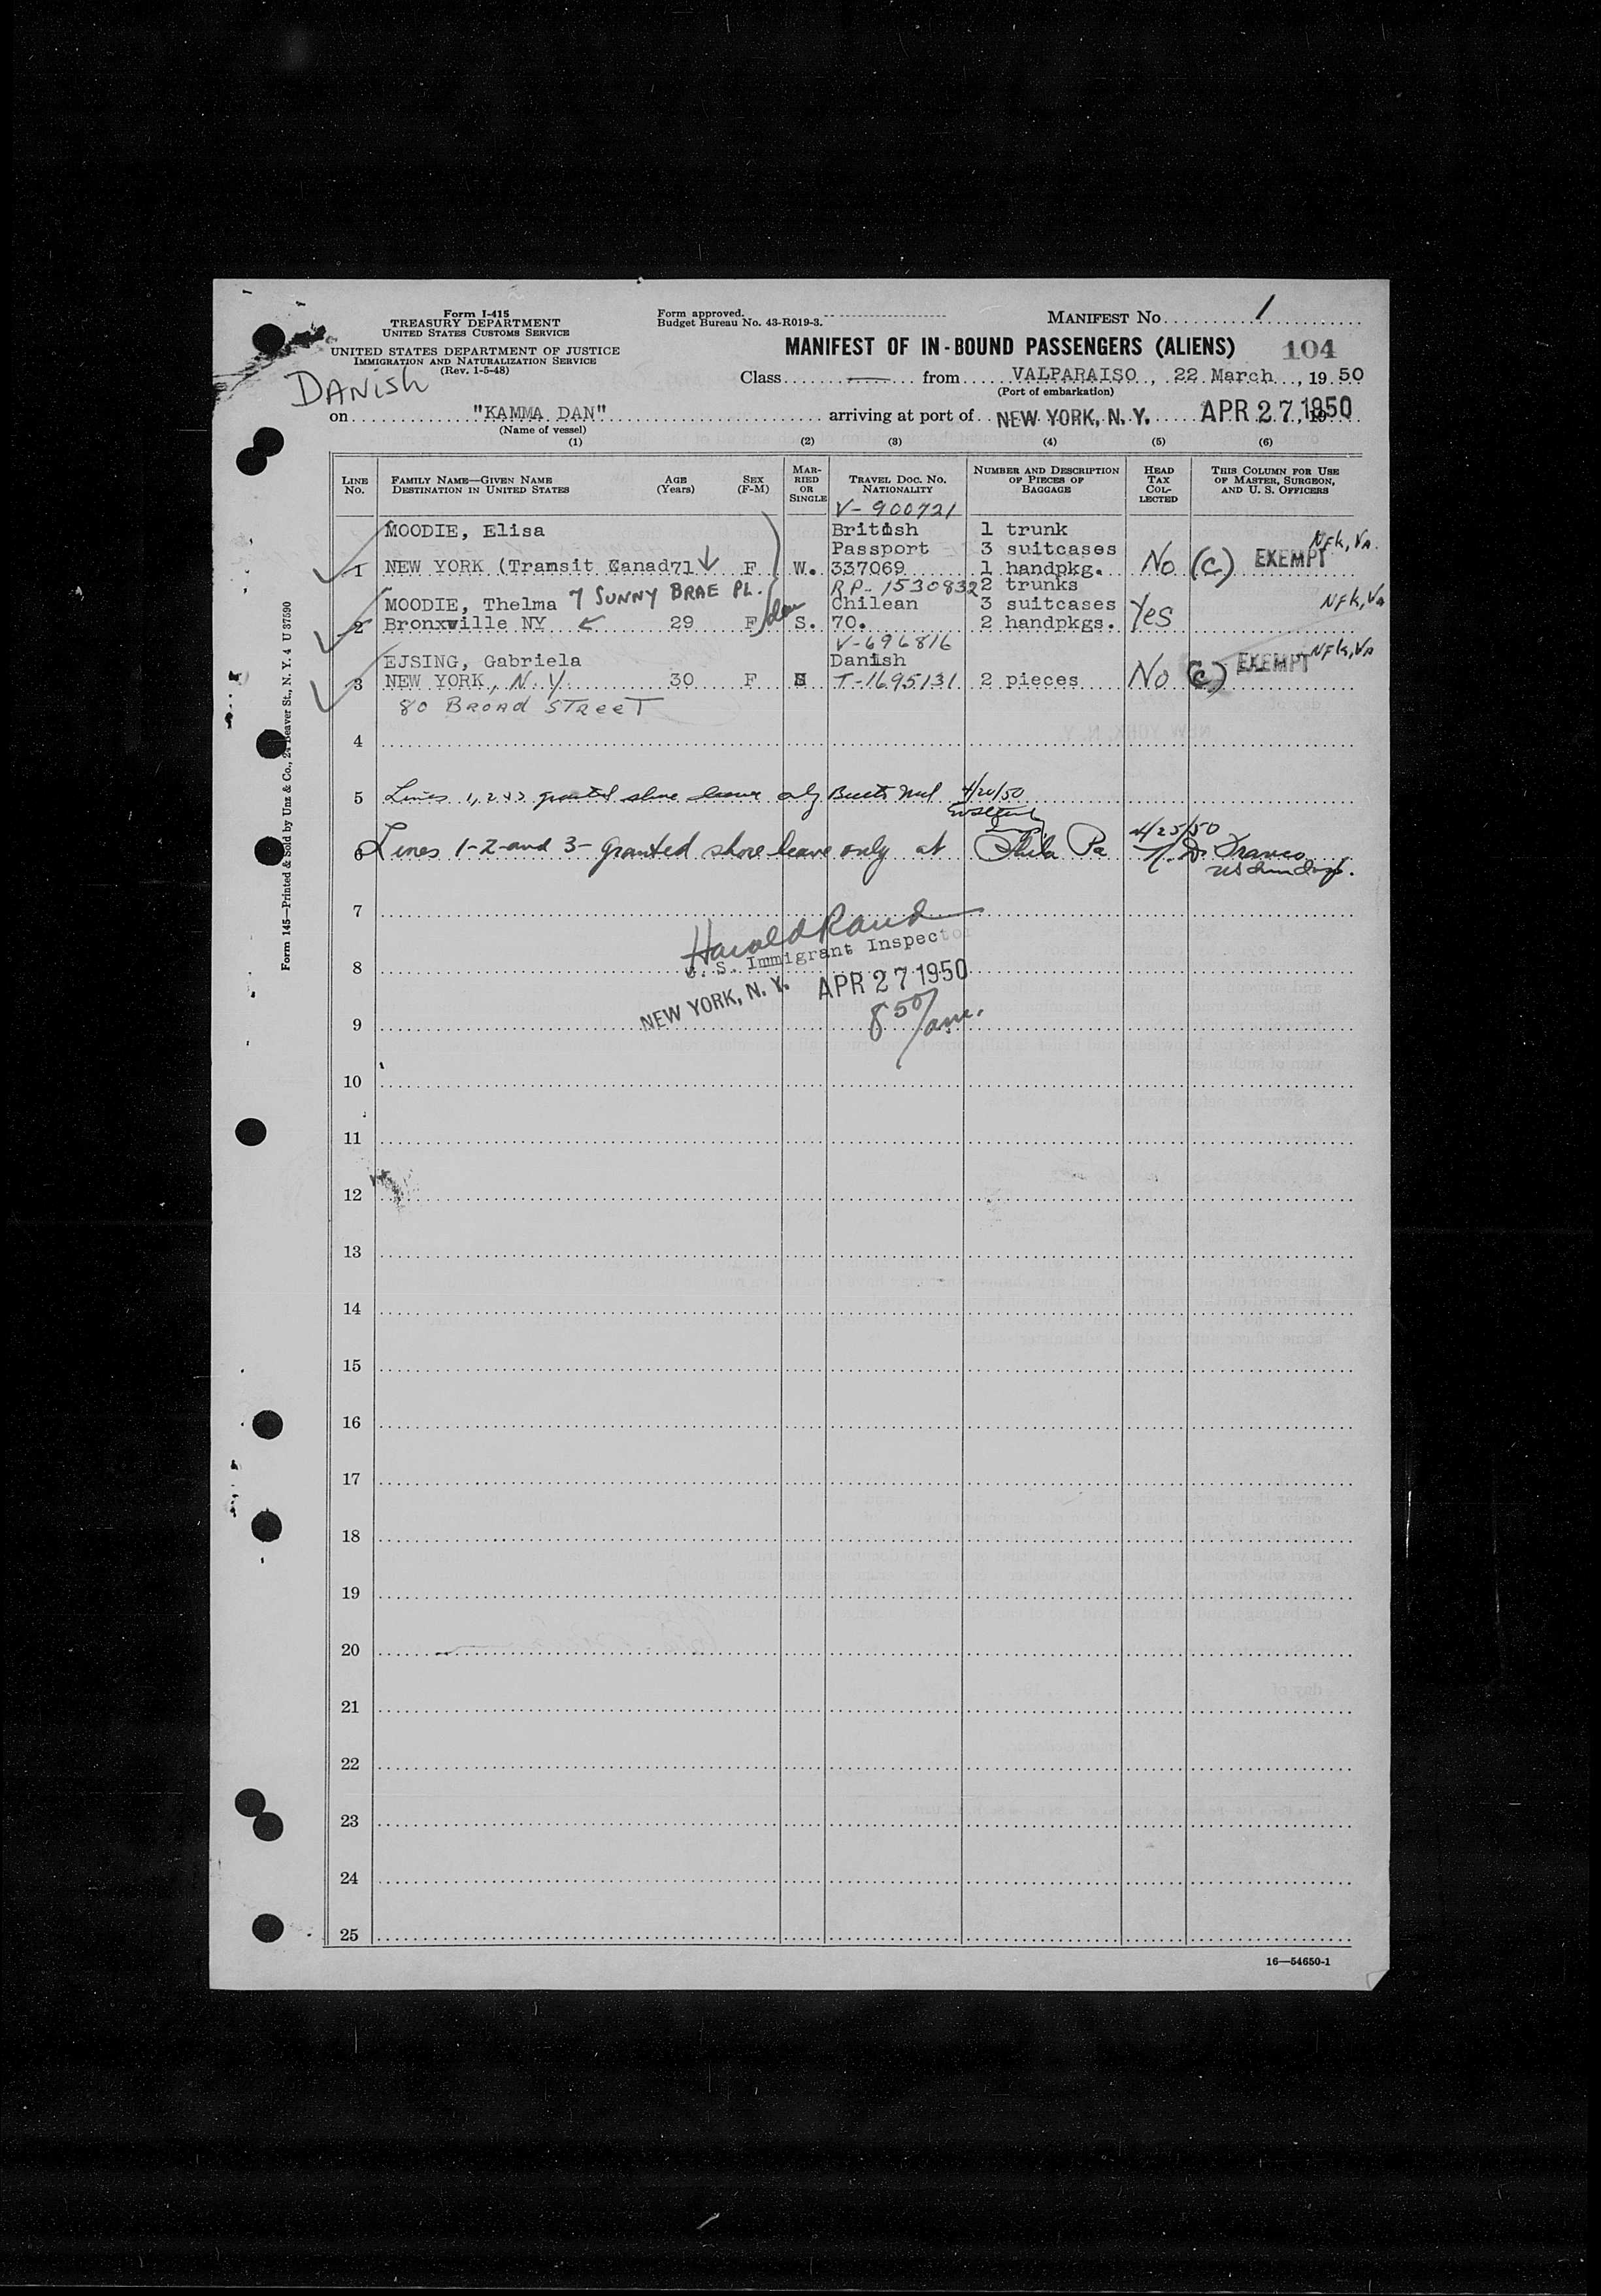 Form I-415
TREASURY DEPARTMENT
UNITED STATES CUSTOMS SERVICE
UNITED STATES DEPARTMENT OF JUSTICE
IMMIGRATION AND NATURALIZATION SERVICE
(Rev. 1-5-48)
Form approved.
Budget Bureau No. 43-R019-3.
MANIFEST NO. 1
MANIFEST OF IN-BOUND PASSENGERS (ALIENS) 104
DANISH
Class from VALPARAISO, 22 March, 1950
(Port of embarkation)
on "KAMMA DAN" arriving at port of NEW YORK, N. Y. APR 27, 1950
(Name of vessel)
(1) (2) (3) (4) (5) (6)
LINE NO.
FAMILY NAME—GIVEN NAME
DESTINATION IN UNITED STATES
AGE (Years)
SEX (F-M)
MARRIED OR SINGLE
TRAVEL DOC. NO. NATIONALITY
NUMBER AND DESCRIPTION OF PIECES OF BAGGAGE
HEAD TAX COLLECTED
THIS COLUMN FOR USE OF MASTER, SURGEON, AND U. S. OFFICERS
V-900721
MOODIE, Elisa British 1 trunk
Passport 3 suitcases Nfk, Va.
1 NEW YORK (Transit Canad 71 F W. 337069 1 handpkg. No (C) EXEMPT
7 SUNNY BRAE PL. RP-1530832 2 trunks
MOODIE, Thelma Chilean 3 suitcases Nfk, Va
2 Bronxville NY 29 F S. 70. 2 handpkgs. Yes
V-696816
EJSING, Gabriela Danish EXEMPT Nfk, Va
3 NEW YORK, N.Y. 30 F S T-1695131 2 pieces No (C)
80 BROAD STREET
4
5 Lines 1, 2 & 3 granted shore leave only 4/20/50
6 Lines 1-2-and 3- granted shore leave only at Phila Pa 4/25/50
7
Harold Rand
U. S. Immigrant Inspector
8
NEW YORK, N. Y. APR 27 1950
9
8 50/am.
10
11
12
13
14
15
16
17
18
19
20
21
22
23
24
25
16—54650-1
Form 145—Printed & Sold by Unz & Co., 24 Beaver St., N. Y. 4 U 37590